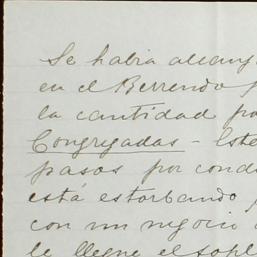 Se habia alcanz
en el Berrendo
la cantidad
Congregadas - Este
pasos por cond
está estorbando
con un negocio
le llegue el sopl